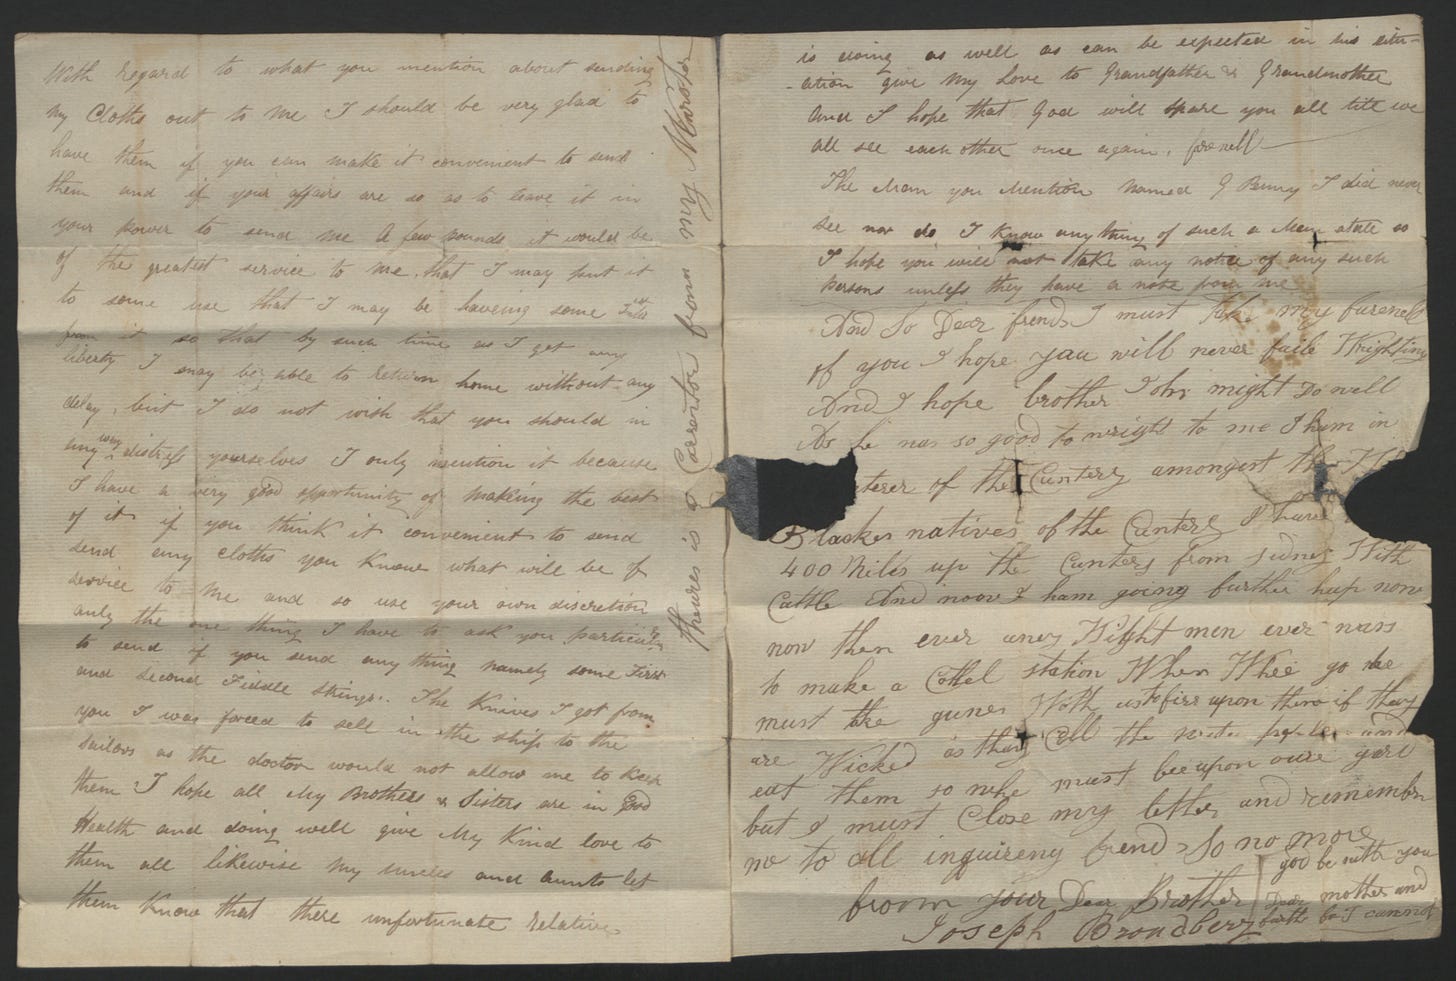 With regard to what you mention about sending
My Cloths out to me I should be very glad to
have them if you can make it convenient to send
them and if your affairs are so as to leave it in
your power to send me A few pounds it would be
of the greatest service to me that I may put it
to some use that I may be haveing some
from it so that by such time as I get any
liberty I may be able to return home without any
delay, but I do not wish that you should in
any way distress yourselves I only mention it because
I have a very good opportunity of making the best
of it if you think it convenient to send
send any cloths you know what will be of
service to me and so use your own discretion
only the one thing I have to ask you
to send if you send any thing namely some First
and Second Fiddle Strings. The Knives I got from
you I was forced to sell in the ship to the
Sailors as the doctor would not allow me to keep
them I hope all My Brothers & Sisters are in God
Health and doing well give My Kind love to
them all likewise My uncles and aunts let
them Know that there unfortunate relative
theires is a from my
is doing as well as can be expected in his situ-
-ation give My Love to Grandfather & Grandmother
And I hope that God will spare you all till we
all see each other once again, farewell
The Man you Mention Named G Penny I did never
see nor do I Know any thing of such a Man
I hope you will not take any notice of any such
Persons unless they have a note from me
And So Dear frends I must take my farewell
of you I hope you will never faile
And I hope brother John might Do well
As he was so good to wright to me I ham in
of the Cuntery amongest the
Blackes natives of the Cuntery I have
400 Miles up the Cuntery from Sidney With
Cattle And noow I ham going further hup now
now then ever aney Whight men ever was
to make a Cattel station When Whee go we
must take gunes With us to fire upon them if they
are Wicked as they Cill the and
eat them so whe must bee upon oure gard
but I must Close my letter and remember
me to all inquireng frends So no more
froom your Dear Brother
Joseph Broadberry
god be with you
Dear mother and
I cannot